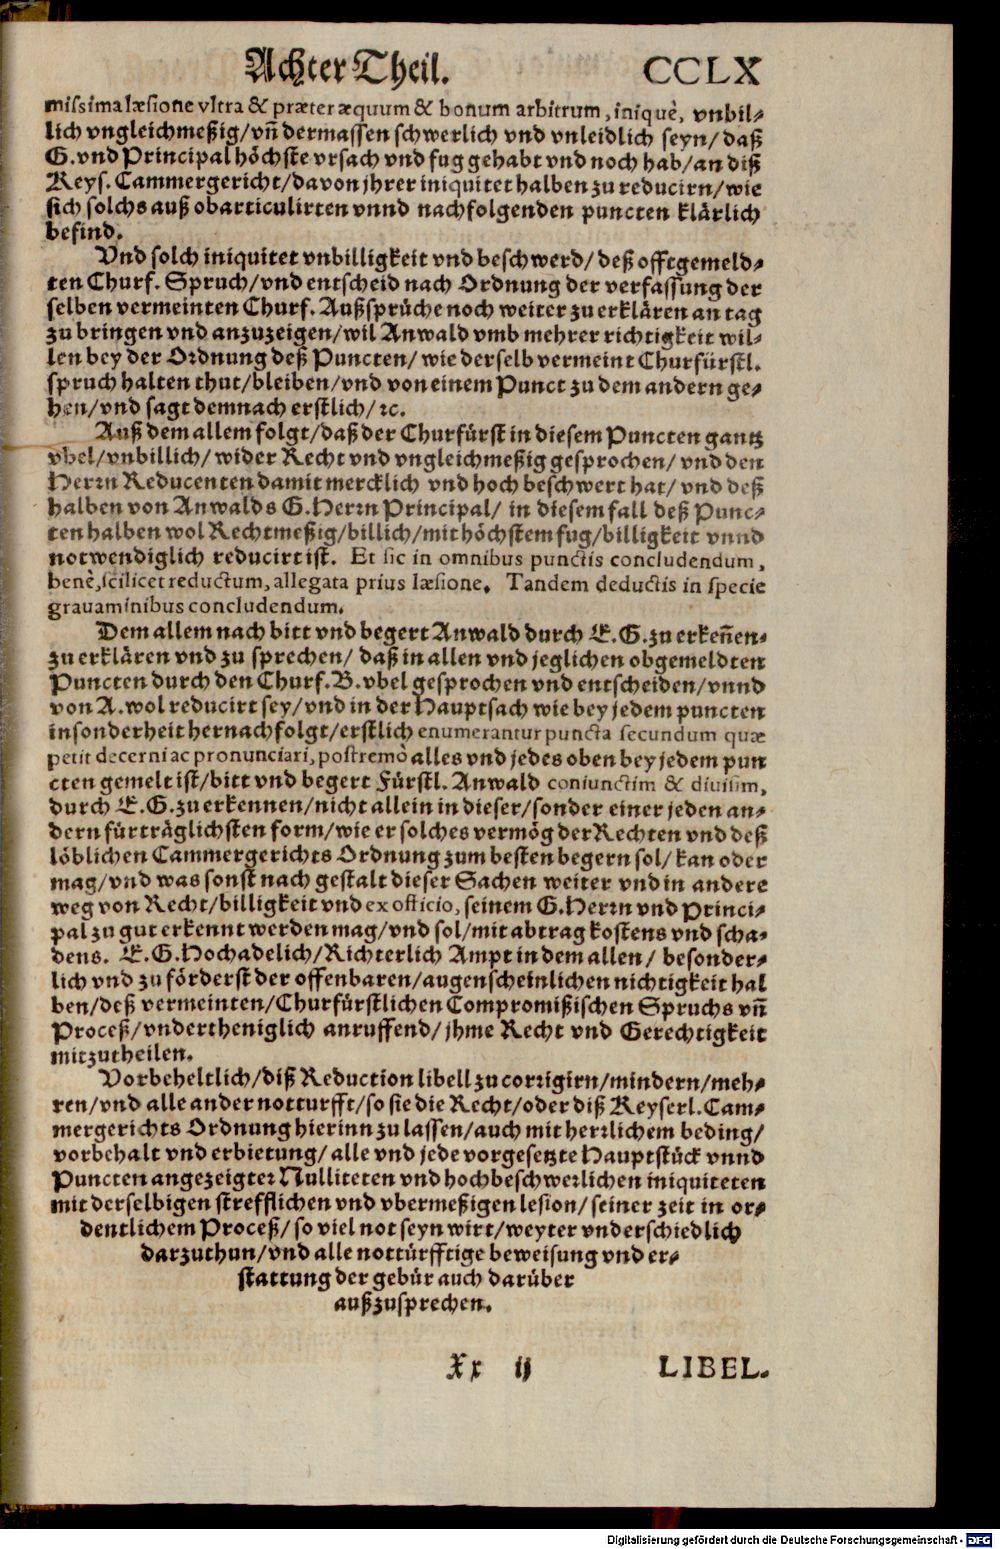 Achter Theil. CCLX
missima læsione vltra & præter æquum & bonum arbitrum, iniquè, vnbil-
lich vngleichmeßig/ vñ dermassen schwerlich vnd vnleidlich seyn/ daß
G. vnd Principal höchste vrsach vnd fug gehabt vnd noch hab/ an diß
Keys. Cammergericht/ davon jhrer iniquitet halben zu reducirn/ wie
sich solchs auß obarticulirten vnnd nachfolgenden puncten klärlich
befind.
Vnd solch iniquitet vnbilligkeit vnd beschwerd/ deß offtgemeld-
ten Churf. Spruch/ vnd entscheid nach Ordnung der verfassung der
selben vermeinten Churf. Außsprüche noch weiter zu erklären an tag
zu bringen vnd anzuzeigen/ wil Anwald vmb mehrer richtigkeit wil-
len bey der Ordnung deß Puncten/ wie derselb vermeint Churfürstl.
spruch halten thut/ bleiben/ vnd von einem Punct zu dem andern ge-
hen/ vnd sagt demnach erstlich/ ꝛc.
Auß dem allem folgt/ daß der Churfürst in diesem Puncten gantz
vbel/ vnbillich/ wider Recht vnd vngleichmeßig gesprochen/ vnd den
Herrn Reducenten damit mercklich vnd hoch beschwert hat/ vnd deß
halben von Anwalds G. Herrn Principal/ in diesem fall deß Punc-
ten halben wol Rechtmeßig/ billich/ mit höchstem fug/ billigkeit vnnd
notwendiglich reducirt ist. Et sic in omnibus punctis concludendum,
benè, scilicet reductum, allegata prius læsione. Tandem deductis in specie
grauaminibus concludendum.
Dem allem nach bitt vnd begert Anwald durch E. G. zu erkeñen-
zu erklären vnd zu sprechen/ daß in allen vnd jeglichen obgemeldten
Puncten durch den Churf. B. vbel gesprochen vnd entscheiden/ vnnd
von A. wol reducirt sey/ vnd in der Hauptsach wie bey jedem puncten
insonderheit hernachfolgt/ erstlich enumerantur puncta secundum quæ
petit decerni ac pronunciari, postremò alles vnd jedes oben bey jedem pun
cten gemelt ist/ bitt vnd begert Fürstl. Anwald coniunctim & diuisim,
durch E. G. zu erkennen/ nicht allein in dieser/ sonder einer jeden an-
dern fürträglichsten form/ wie er solches vermög der Rechten vnd deß
löblichen Cammergerichts Ordnung zum besten begern sol/ kan oder
mag/ vnd was sonst nach gestalt dieser Sachen weiter vnd in andere
weg von Recht/ billigkeit vnd ex officio, seinem G. Herrn vnd Princi-
pal zu gut erkennt werden mag/ vnd sol/ mit abtrag kostens vnd scha-
dens. E. G. Hochadelich/ Richterlich Ampt in dem allen/ besonder-
lich vnd zu förderst der offenbaren/ augenscheinlichen nichtigkeit hal
ben/ deß vermeinten/ Churfürstlichen Compromißischen Spruchs vñ
Proceß/ vndertheniglich anruffend/ jhme Recht vnd Gerechtigkeit
mitzutheilen.
Vorbeheltlich/ diß Reduction libell zu corrigirn/ mindern/ meh-
ren/ vnd alle ander notturfft/ so sie die Recht/ oder diß Keyserl. Cam-
mergerichts Ordnung hierinn zu lassen/ auch mit herrlichem beding/
vorbehalt vnd erbietung/ alle vnd jede vorgesetzte Hauptstück vnnd
Puncten angezeigter Nulliteten vnd hochbeschwerlichen iniquiteten
mit derselbigen strefflichen vnd vbermeßigen lesion/ seiner zeit in or-
dentlichem Proceß/ so viel not seyn wirt/ weyter vnderschiedlich
darzuthun/ vnd alle nottürfftige beweisung vnd er-
stattung der gebür auch darüber
außzusprechen.
Xx ij LIBEL.
Digitalisierung gefördert durch die Deutsche Forschungsgemeinschaft - DFG